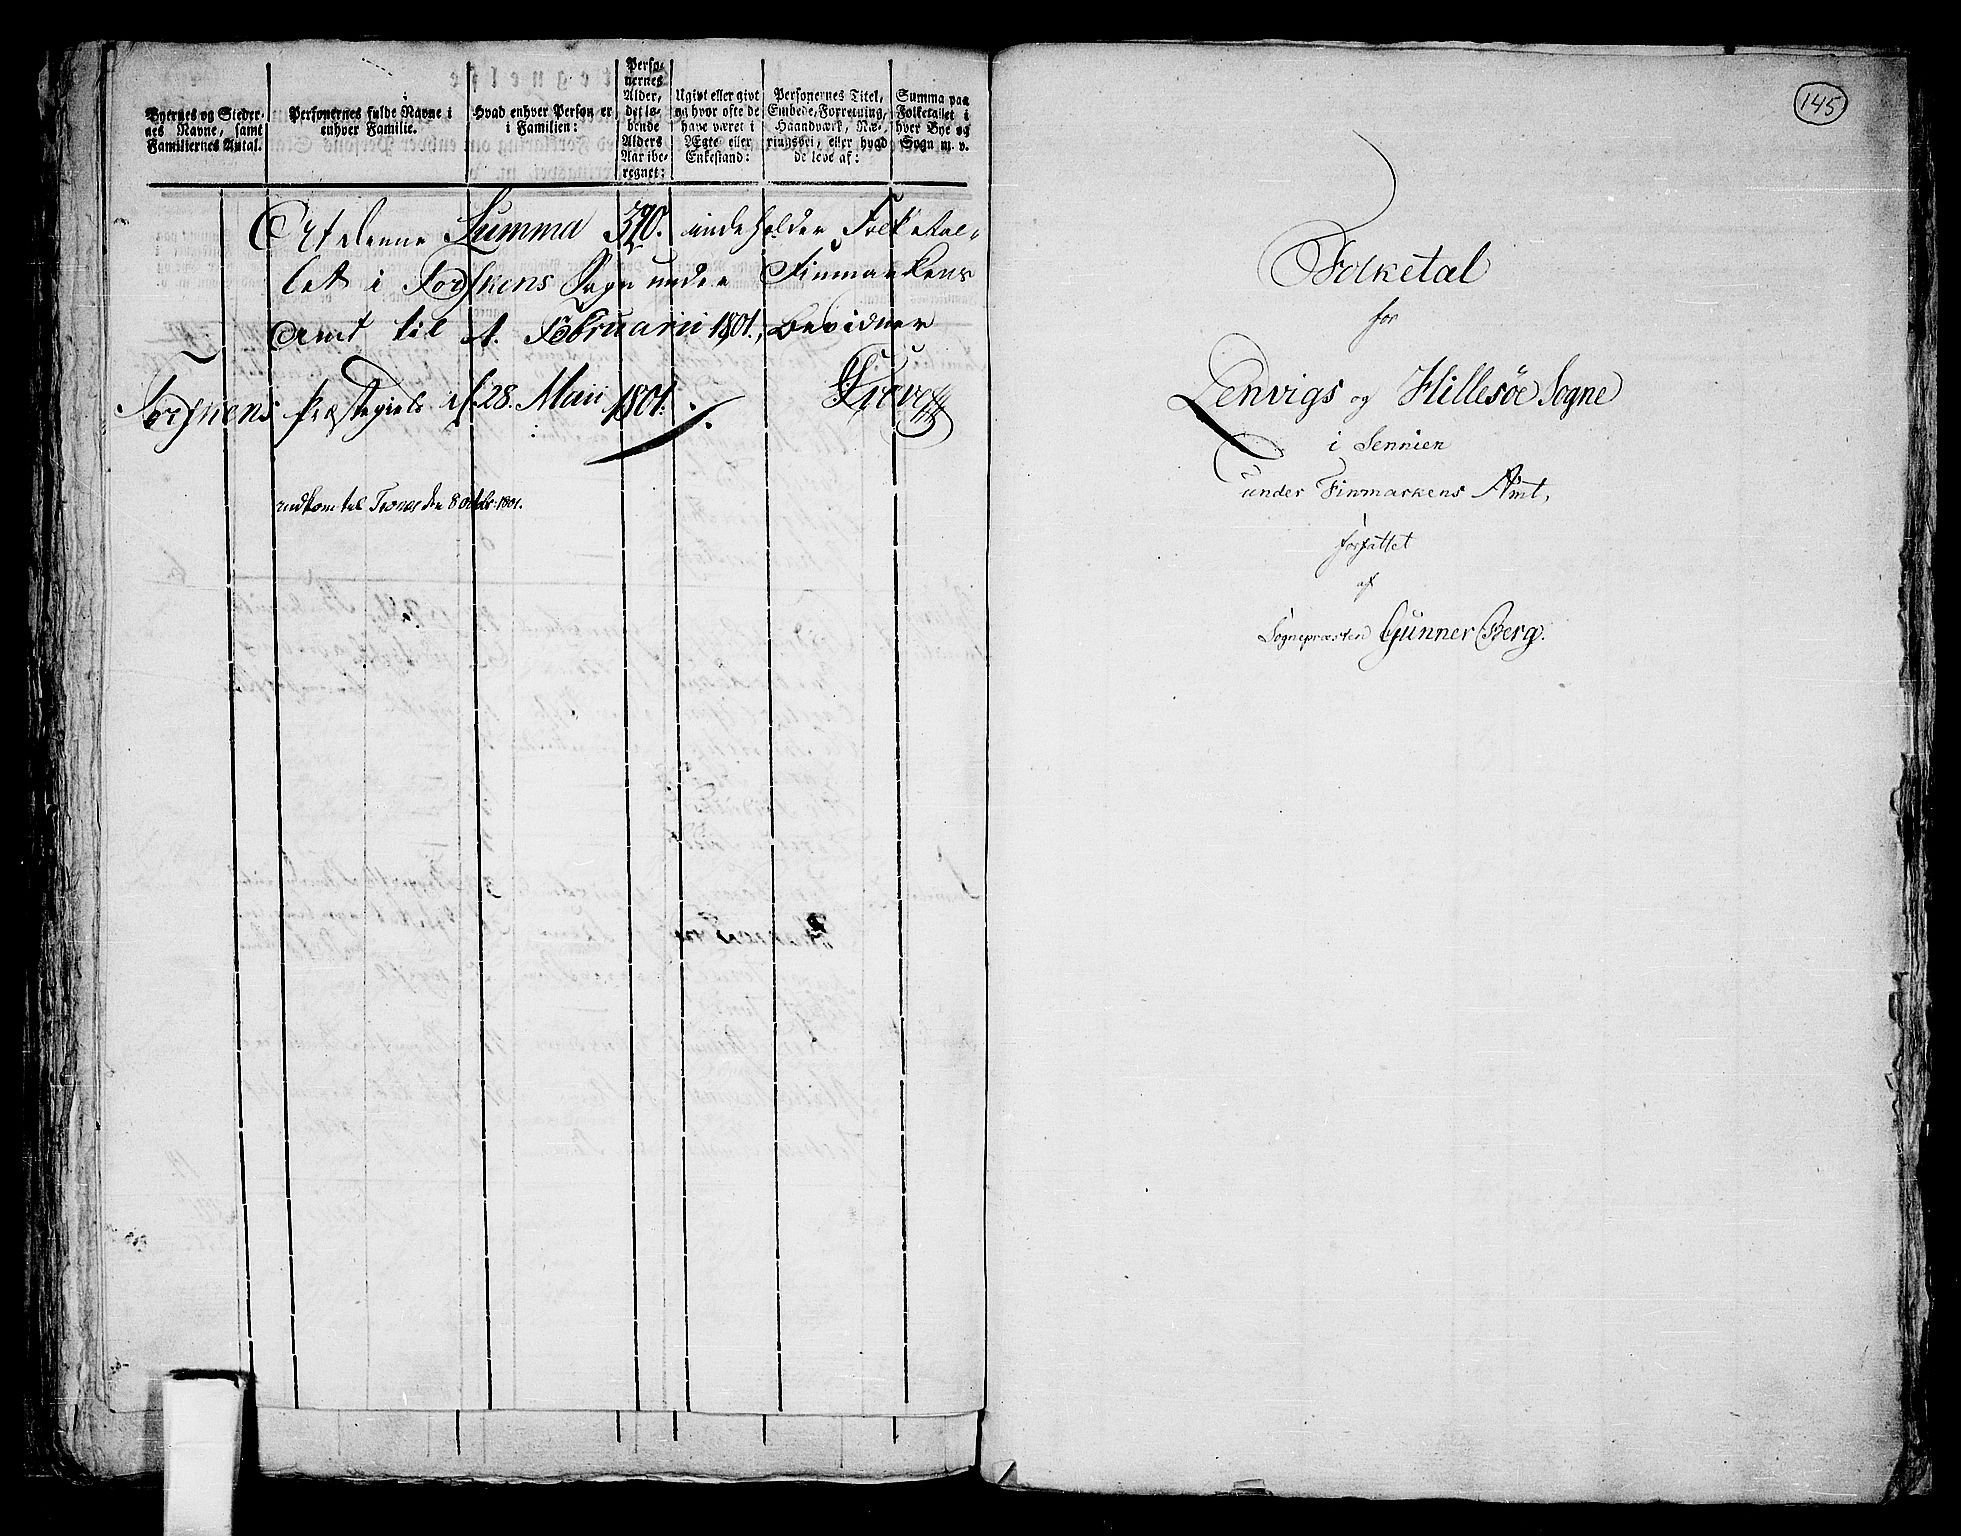 Byernes og Steder-
nes Navne, samt
Familiernes Antal.
Personernes fulde Navne i
enhver Familie.
Hvad enhver Person er
i Familien:
Perso-
nernes
Alder,
det lø-
bende
Alders
Aar ibe-
regnet:
Ugivt eller givt
og hvor ofte de
have været i
Ægte eller
Enkestand:
Personernes Titel,
Embede, Forretning,
Haandværk, Næ-
ringsvei, eller hvad
de leve af:
Summa paa
Folketallet i
hver Bye og
Sogn m. v.
At denne Summa 390. indeholder Folketal-
let i Torskens Sogn under Finmarkens
Amt til 1. Februarii 1801, bevidner
Torskens præstegield d. 28. Maii 1801.
indkom til Tromsø den 8 Octbr. 1801.
145
Folketal
for
Lenvigs og Hillesøe Sogne
i Sennien
under Finmarkens Amt,
forfattet
af
Sognepræsten Gunner Berg.